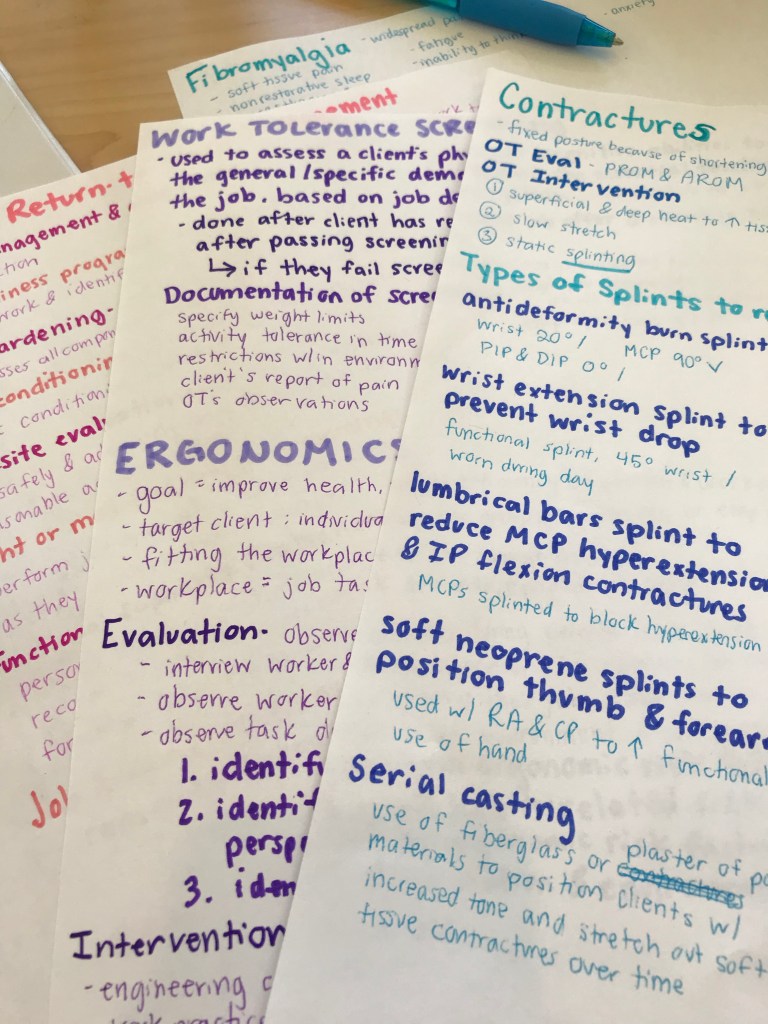 Fibromyalgia
- widespread
- fatigue
- inability to
- anxiety
- soft tissue pain
- nonrestorative sleep
Return-
&
work & identif
asses all
condition
safely & a
perform
as they
for
WORK TOLERANCE SCRE
- used to assess a client's ph
the general/specific dem
the job. based on job d
- done after client has re
after passing screenin
↳ if they fail scree
Documentation of scre
specify weight limits
activity tolerance in time
restrictions w/in environm
client's report of pain
OT's observations
ERGONOMICS
- goal = improve health,
- target client : individua
- fitting the workplac
- workplace = job tas
Evaluation- observe
- interview worker &
- observe worker
- observe task d
1. identifi
2. identif
persp
3. iden
Intervention
- engineering c
Contractures
- fixed posture because of shortening
OT Eval - PROM & AROM
OT Intervention
① superficial & deep heat to ↑ tiss
② slow stretch
③ static splinting
Types of Splints to r
antideformity burn splint
wrist 20° / MCP 90° ✓
PIP & DIP 0° /
wrist extension splint to
prevent wrist drop
functional splint, 45° wrist /
worn during day
lumbrical bars splint to
reduce MCP hyperextensio
& IP flexion contractures
MCPs splinted to block hyperextension
soft neoprene splints to
position thumb & forear
used w/ RA & CP to ↑ functional
use of hand
Serial casting
use of fiberglass or plaster of pa
materials to position clients w/
increased tone and stretch out soft
tissue contractures over time